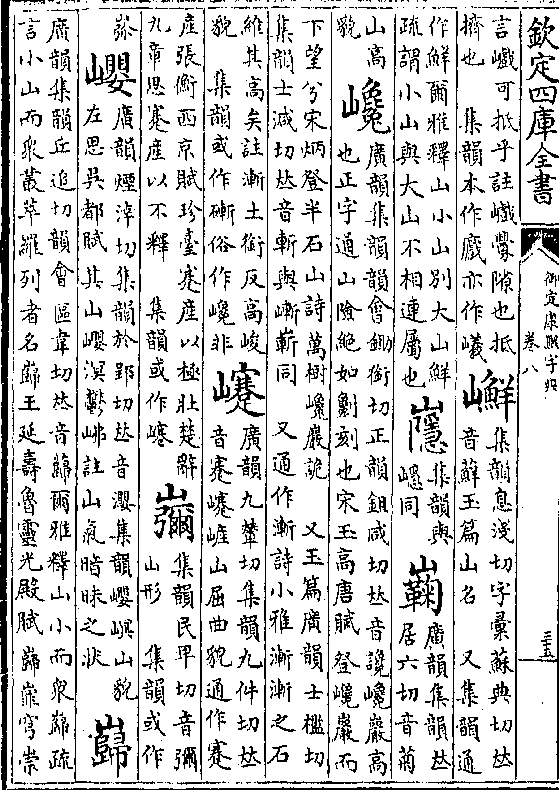 欽定四庫全書
御定康熙字典
卷八
三五
言巇可抵乎註巇釁隙也抵
擠也　集韻本作戲亦作㠢
㠢
集韻息淺切字彙蘇典切𠀤
音鮮玉篇山名　又集韻通
作鮮爾雅釋山小山別大山鮮
疏謂小山與大山不相連屬也
㠧
集韻與
嶾同
廣韻集韻𠀤
居六切音菊
山高
貌
巉
廣韻集韻韻會鋤銜切正韻鉏咸切𠀤音讒巉巖高
也正字通山險絕如劖刻也宋玉高唐賦登巉巖而
下望兮宋炳登半石山詩萬樹巉巖詭　又玉篇廣韻士檻切
集韻士減切𠀤音嶃與嶄嶃同　又通作漸詩小雅漸漸之石
維其高矣註漸土銜反高峻
貌　集韻或作磛俗作巉非
㩃
廣韻九輦切集韻九件切𠀤
音蹇㠊嵼山屈曲貌通作蹇
產張衡西京賦珍臺蹇產以極壯楚辭
九章思蹇產以不釋　集韻或作嵃
集韻民𤰞切音彌
山形　集韻或作
㟽
巊
廣韻煙涬切集韻於郢切𠀤音瀴集韻巊㟠山貌
左思吳都賦其山巊溟鬱岪註山氣暗昧之狀
巋
廣韻集韻丘追切韻會區韋切𠀤音蘬爾雅釋山小而衆巋疏
言小山而衆叢萃羅列者名巋王延壽魯靈光殿賦巋巋穹崇